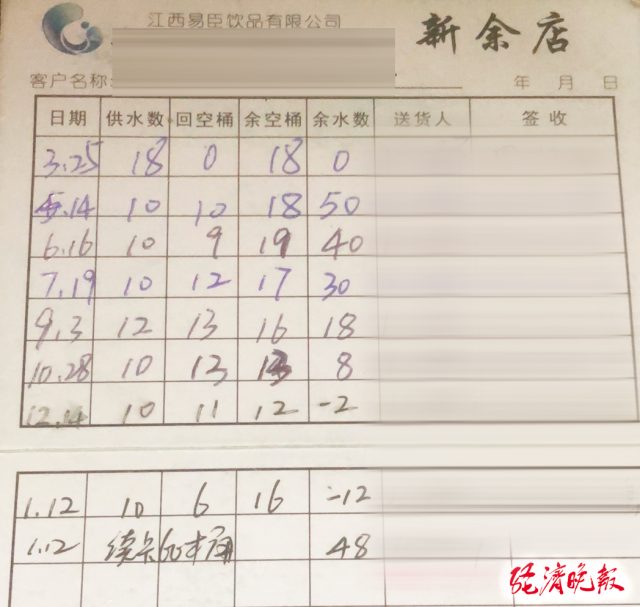 江西易臣饮品有限公司
新余店
客户名称:
年 月 日
日期 供水数 回空桶 余空桶 余水数 送货人 签收
3.25 18 0 18 0
5.14 10 10 18 50
6.16 10 9 19 40
7.19 10 12 17 30
9.3 12 13 16 18
10.28 10 13 13 8
12.14 10 11 12 -2
1.12 10 6 16 -12
1.12 续卡60本用 48
经濟晚报